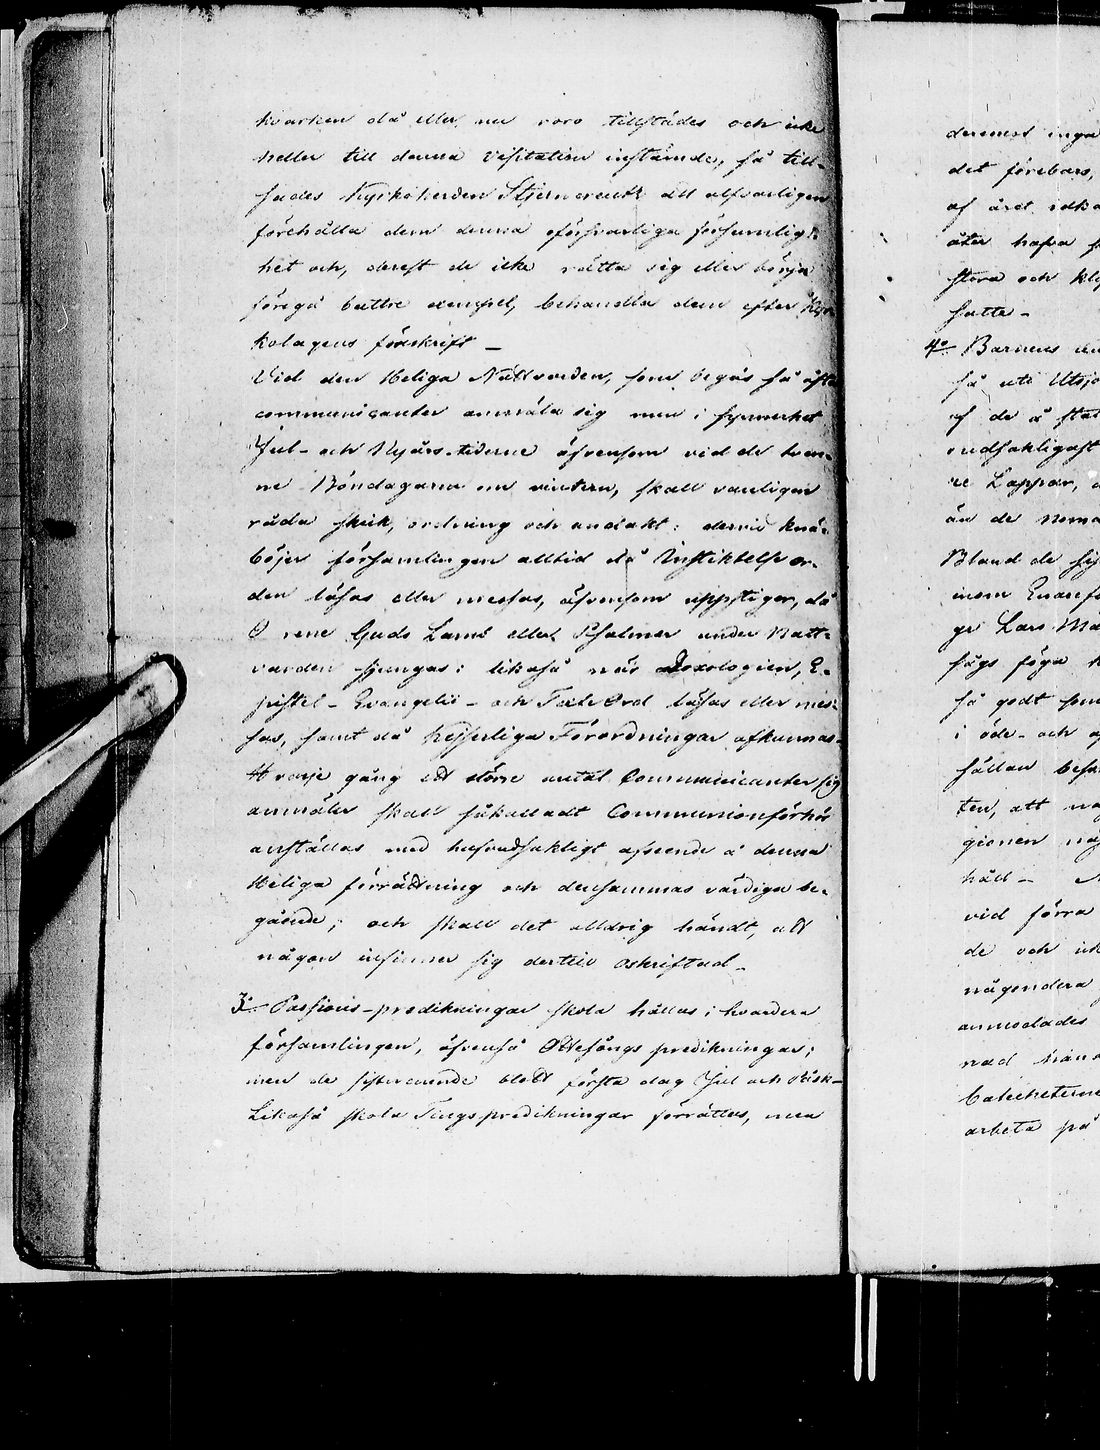 hvarken då eller nu voro tillstädes och icke
heller till denna visitation instämde, så till-
sades Kyrkoherden Stjerncreutz att alfvarligen
förehålla dem denna oförsvarliga försumlig-
het och, derest de icke rätta sig eller börja
föregå bättre exempel, behandla dem efter Kyr
kolagens föreskrift _
Vid den Heliga Nattvarden, som begås så ofta
communicanter anmäla sig men i synnerhet
Jul- och Nyårs-tiderne äfvensom vid de tven-
ne Böndagarna om vintern, skall vanligen
råda skick, ordning och andakt: dervid knä-
böjer församlingen alltid då Instiktelse or-
den läsas eller messas, äfvensom uppstiger, då
O rene Guds Lamb eller Psalmer under Natt-
varden sjungas: likaså när Doxologien, E-
pistel- Evangelii- och Texte Ord läsas eller mes-
sas, samt då Kejserliga Förordningar afkunnas-
Hvarje gång ett större antal Communicanter sig
anmäler skall såkalladt Communionförhör
anställas med hufvudsakligt afseende å denna
Heliga förrättning och densammas värdiga be-
gående; och skall det alldrig händt, att
någon infinner sig dertill Oskriftad_
3:o Passions-predikningar skola hållas i hvardera
församlingen, äfvenså Ottesångs predikningar;
men de sistnämnde blott första dag Jul och Påsk-
Likaså skola Tingspredikningar förrättas, men
deremot inga
det förebars,
af året idka
åter hafva
stora och
satte-
4:o Barnens
så uti Utsjo
af de å
vudsakligast
re Lappar,
än de noma
Bland de
inom Enare
ge Lars Ma
sägs föga
så godt som
i öde- och
sällan
ten, att
gionen
håll-
vid förra
de och
någondera
anmodades
nad
Catecheterne
arbeta på